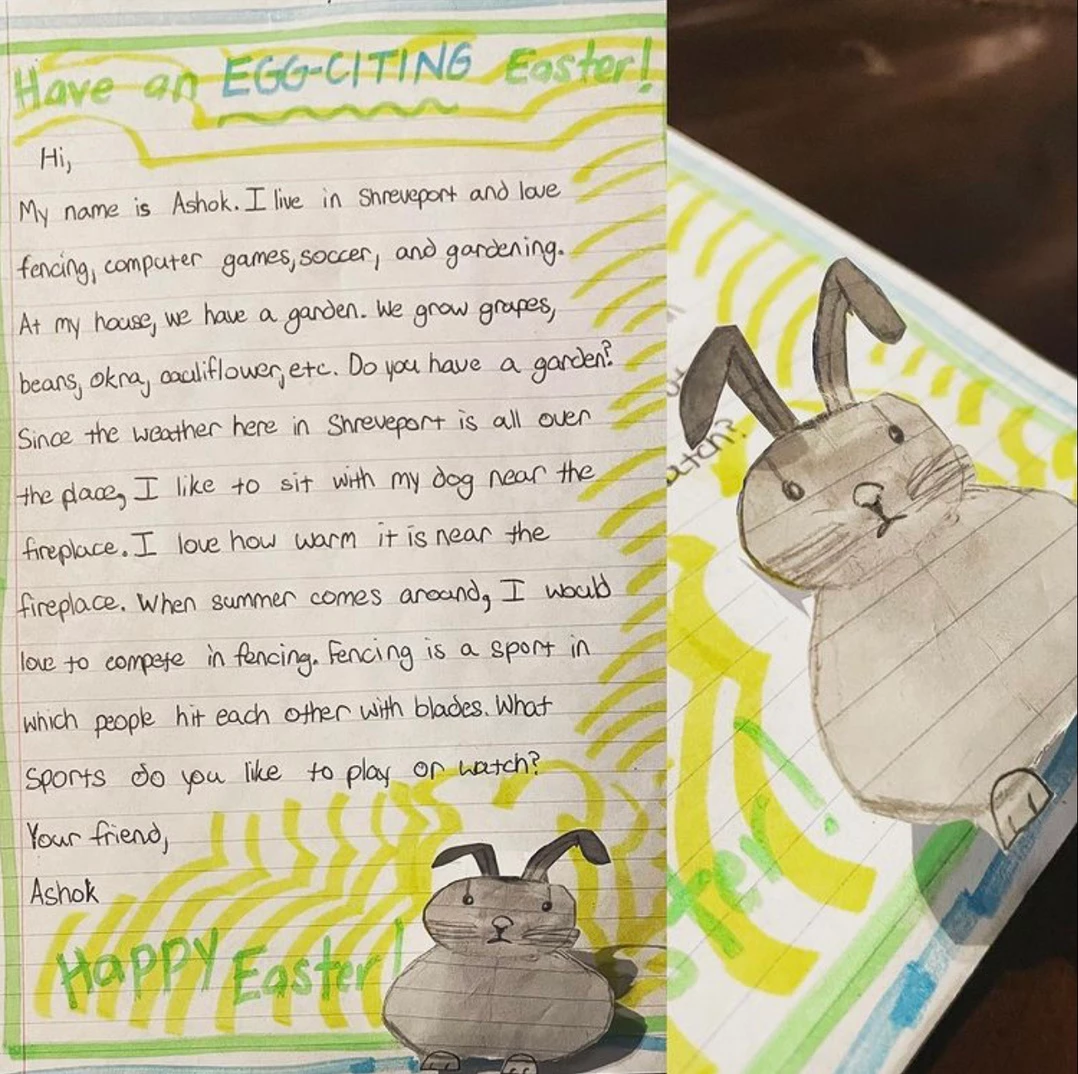 Have an EGG-CITING Easter!
Hi,
My name is Ashok. I live in Shreveport and love
fencing, computer games, soccer, and gardening.
At my house, we have a garden. We grow grapes,
beans, okra, cauliflower, etc. Do you have a garden?
Since the weather here in Shreveport is all over
the place, I like to sit with my dog near the
fireplace. I love how warm it is near the
fireplace. When summer comes around, I would
love to compete in fencing. Fencing is a sport in
which people hit each other with blades. What
sports do you like to play or watch?
Your friend,
Ashok
Happy Easter!